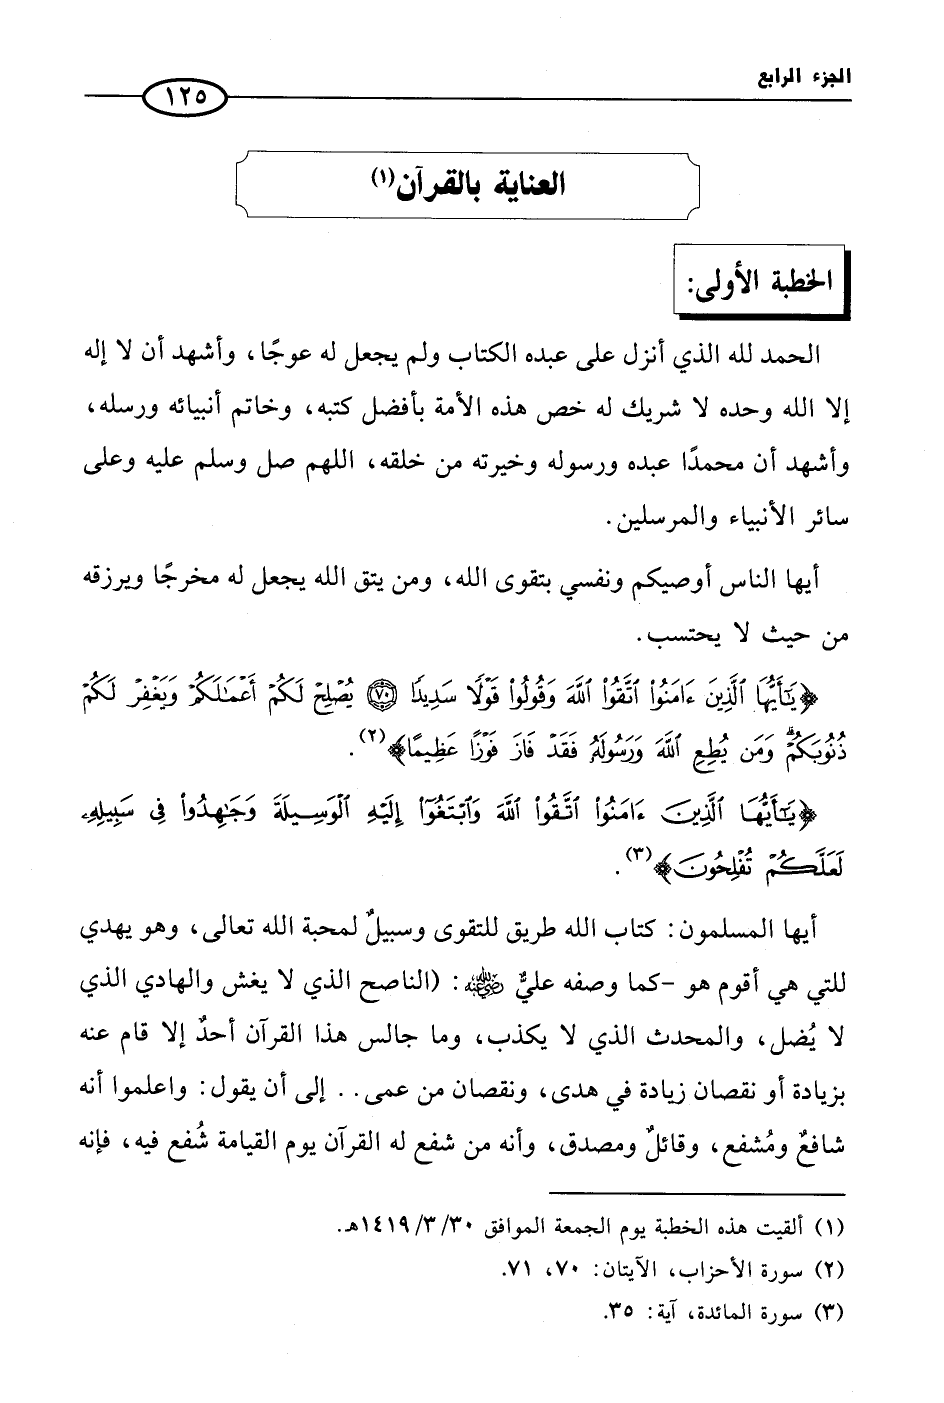 الجزء الرابع
١٢٥
العناية بالقرآن(١)
الخطبة الأولى:
الحمد لله الذي أنزل على عبده الكتاب ولم يجعل له عوجًا، وأشهد أن لا إله
إلا الله وحده لا شريك له خص هذه الأمة بأفضل كتبه، وخاتم أنبيائه ورسله،
وأشهد أن محمدًا عبده ورسوله وخيرته من خلقه، اللهم صل وسلم عليه وعلى
سائر الأنبياء والمرسلين.
أيها الناس أوصيكم ونفسي بتقوى الله، ومن يتق الله يجعل له مخرجًا ويرزقه
من حيث لا يحتسب.
﴿يَٰٓأَيُّهَا ٱلَّذِينَ ءَامَنُوا۟ ٱتَّقُوا۟ ٱللَّهَ وَقُولُوا۟ قَوْلًا سَدِيدًا ٧٠ يُصْلِحْ لَكُمْ أَعْمَٰلَكُمْ وَيَغْفِرْ لَكُمْ
ذُنُوبَكُمْ ۗ وَمَن يُطِعِ ٱللَّهَ وَرَسُولَهُۥ فَقَدْ فَازَ فَوْزًا عَظِيمًا﴾(٢).
﴿يَٰٓأَيُّهَا ٱلَّذِينَ ءَامَنُوا۟ ٱتَّقُوا۟ ٱللَّهَ وَٱبْتَغُوٓا۟ إِلَيْهِ ٱلْوَسِيلَةَ وَجَٰهِدُوا۟ فِى سَبِيلِهِۦ
لَعَلَّكُمْ تُفْلِحُونَ﴾(٣).
أيها المسلمون: كتاب الله طريق للتقوى وسبيلٌ لمحبة الله تعالى، وهو يهدي
للتي هي أقوم هو -كما وصفه عليٌّ رضي الله عنه: (الناصح الذي لا يغش والهادي الذي
لا يُضل، والمحدث الذي لا يكذب، وما جالس هذا القرآن أحدٌ إلا قام عنه
بزيادة أو نقصان زيادة في هدى، ونقصان من عمى.. إلى أن يقول: واعلموا أنه
شافعٌ ومُشفع، وقائلٌ ومصدق، وأنه من شفع له القرآن يوم القيامة شُفع فيه، فإنه
(١) ألقيت هذه الخطبة يوم الجمعة الموافق ٣٠/ ٣/ ١٤١٩هـ.
(٢) سورة الأحزاب، الآيتان: ٧٠، ٧١.
(٣) سورة المائدة، آية: ٣٥.